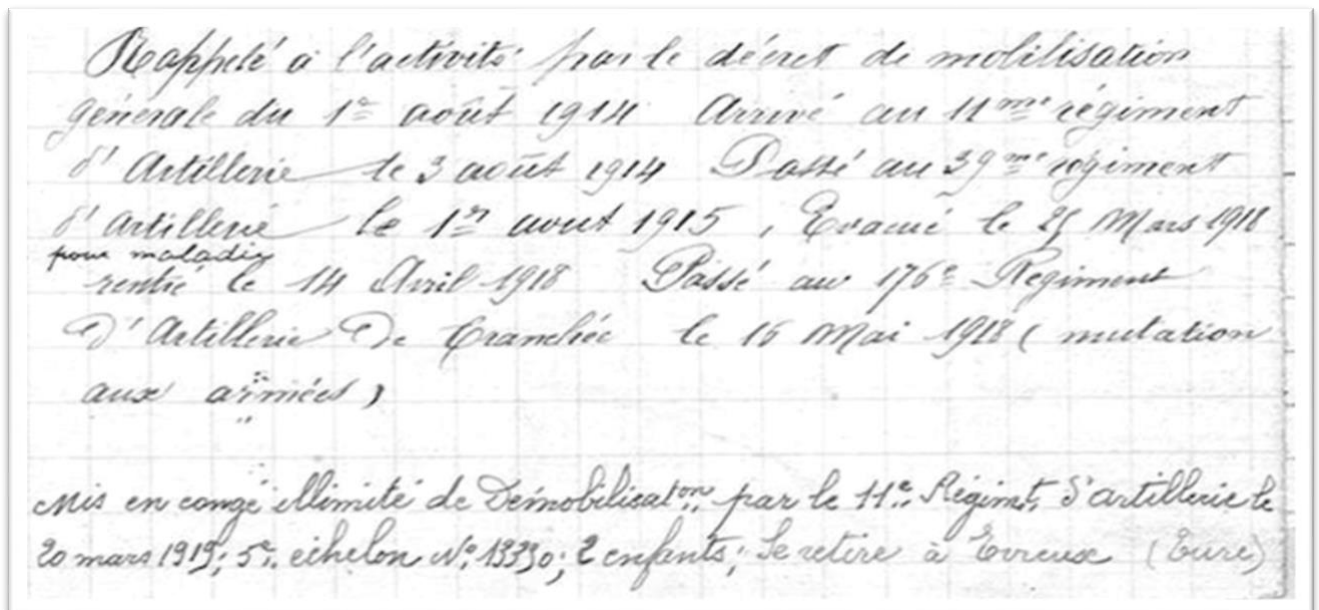 Rappelé à l'activité par le décret de mobilisation
générale du 1er août 1914 Arrivé au 11me régiment
d'Artillerie le 3 août 1914 Passé au 39me régiment
d'Artillerie le 1er aout 1915, Evacué le Mars 1918
pour maladie
rentré le 14 Avril 1918 Passé au 176e Régiment
D'Artillerie De tranchée le 16 Mai 1918 (mutation
aux armées)
Mis en congé illimité de Démobilisaton par le 11e Régimt d'artillerie le
20 mars 1919; 5e echelon No 13330; 2 enfants; Se retire à Evreux (Eure)